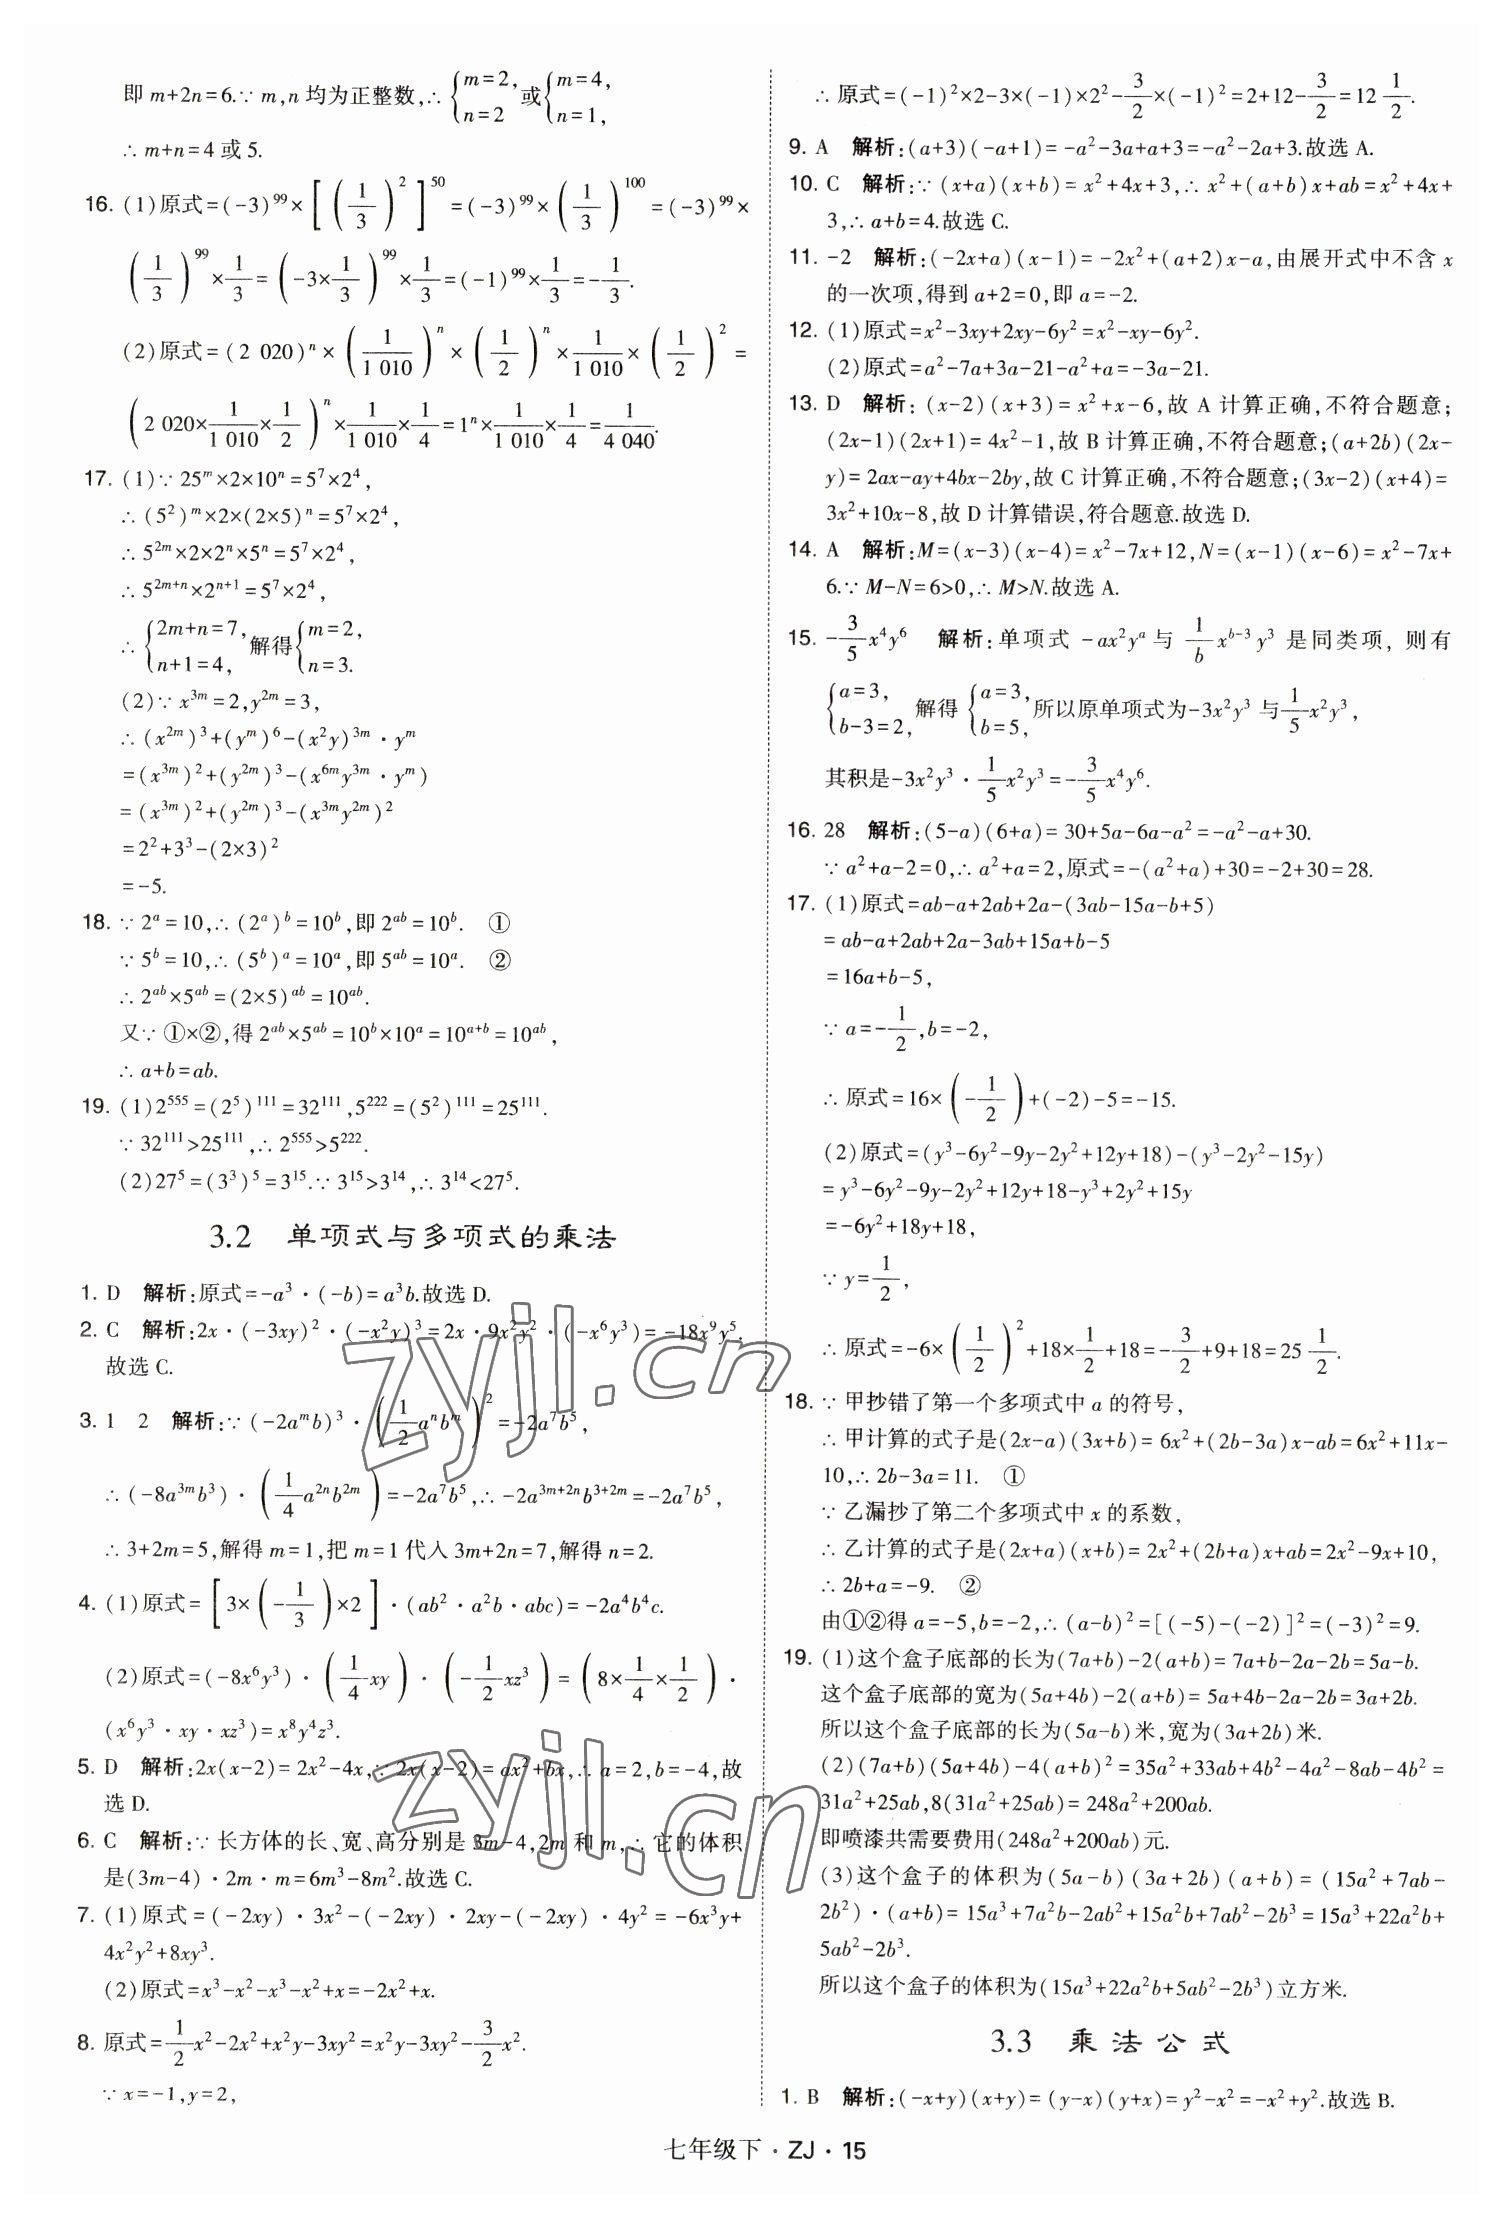 即 m+2n=6.∵ m,n 均为正整数,∴ {m=2, n=2 或{m=4, n=1,
∴ m+n=4 或 5.
16. (1)原式=(-3)^99×[(1/3)^2]^50=(-3)^99×(1/3)^100=(-3)^99×
(1/3)^99×1/3=(-3×1/3)^99×1/3=(-1)^99×1/3=-1/3.
(2)原式=(2 020)^n×(1/1 010)^n×(1/2)^n×1/1 010×(1/2)^2=
(2 020×1/1 010×1/2)^n×1/1 010×1/4=1^n×1/1 010×1/4=1/4 040.
17. (1)∵ 25^m×2×10^n=5^7×2^4,
∴ (5^2)^m×2×(2×5)^n=5^7×2^4,
∴ 5^2m×2×2^n×5^n=5^7×2^4,
∴ 5^(2m+n)×2^(n+1)=5^7×2^4,
∴ {2m+n=7, n+1=4, 解得{m=2, n=3.
(2)∵ x^3m=2,y^2m=3,
∴ (x^2m)^3+(y^m)^6-(x^2y)^3m·y^m
=(x^3m)^2+(y^2m)^3-(x^6my^3m·y^m)
=(x^3m)^2+(y^2m)^3-(x^3my^2m)^2
=2^2+3^3-(2×3)^2
=-5.
18. ∵ 2^a=10,∴ (2^a)^b=10^b,即 2^ab=10^b. ①
∵ 5^b=10,∴ (5^b)^a=10^a,即 5^ab=10^a. ②
∴ 2^ab×5^ab=(2×5)^ab=10^ab.
又∵ ①×②,得 2^ab×5^ab=10^b×10^a=10^(a+b)=10^ab,
∴ a+b=ab.
19. (1)2^555=(2^5)^111=32^111,5^222=(5^2)^111=25^111.
∵ 32^111>25^111,∴ 2^555>5^222.
(2)27^5=(3^3)^5=3^15.∵ 3^15>3^14,∴ 3^14<27^5.
3.2 单项式与多项式的乘法
1. D 解析:原式=-a^3·(-b)=a^3b.故选 D.
2. C 解析:2x·(-3xy)^2·(-x^2y)^3=2x·9x^2y^2·(-x^6y^3)=-18x^9y^5.
故选 C.
3. 1 2 解析:∵ (-2a^mb)^3·(1/2a^nb^m)^2=-2a^7b^5,
∴ (-8a^3mb^3)·(1/4a^2nb^2m)=-2a^7b^5,∴ -2a^(3m+2n)b^(3+2m)=-2a^7b^5,
∴ 3+2m=5,解得 m=1,把 m=1 代入 3m+2n=7,解得 n=2.
4. (1)原式=[3×(-1/3)×2]·(ab^2·a^2b·abc)=-2a^4b^4c.
(2)原式=(-8x^6y^3)·(1/4xy)·(-1/2xz^3)=(8×1/4×1/2)·
(x^6y^3·xy·xz^3)=x^8y^4z^3.
5. D 解析:2x(x-2)=2x^2-4x,∵ 2x(x-2)=ax^2+bx,∴ a=2,b=-4,故
选 D.
6. C 解析:∵ 长方体的长、宽、高分别是 3m-4,2m 和 m,∴ 它的体积
是(3m-4)·2m·m=6m^3-8m^2.故选 C.
7. (1)原式=(-2xy)·3x^2-(-2xy)·2xy-(-2xy)·4y^2=-6x^3y+
4x^2y^2+8xy^3.
(2)原式=x^3-x^2-x^3-x^2+x=-2x^2+x.
8. 原式=1/2x^2-2x^2+x^2y-3xy^2=x^2y-3xy^2-3/2x^2.
∵ x=-1,y=2,
∴ 原式=(-1)^2×2-3×(-1)×2^2-3/2×(-1)^2=2+12-3/2=12 1/2.
9. A 解析:(a+3)(-a+1)=-a^2-3a+a+3=-a^2-2a+3.故选 A.
10. C 解析:∵ (x+a)(x+b)=x^2+4x+3,∴ x^2+(a+b)x+ab=x^2+4x+
3,∴ a+b=4.故选 C.
11. -2 解析:(-2x+a)(x-1)=-2x^2+(a+2)x-a,由展开式中不含 x
的一次项,得到 a+2=0,即 a=-2.
12. (1)原式=x^2-3xy+2xy-6y^2=x^2-xy-6y^2.
(2)原式=a^2-7a+3a-21-a^2+a=-3a-21.
13. D 解析:(x-2)(x+3)=x^2+x-6,故 A 计算正确,不符合题意;
(2x-1)(2x+1)=4x^2-1,故 B 计算正确,不符合题意;(a+2b)(2x-
y)=2ax-ay+4bx-2by,故 C 计算正确,不符合题意;(3x-2)(x+4)=
3x^2+10x-8,故 D 计算错误,符合题意.故选 D.
14. A 解析:M=(x-3)(x-4)=x^2-7x+12,N=(x-1)(x-6)=x^2-7x+
6.∵ M-N=6>0,∴ M>N.故选 A.
15. -3/5x^4y^6 解析:单项式 -ax^2y^a 与 1/b x^(b-3)y^3 是同类项,则有
{a=3, b-3=2, 解得 {a=3, b=5, 所以原单项式为-3x^2y^3 与1/5x^2y^3,
其积是-3x^2y^3·1/5x^2y^3=-3/5x^4y^6.
16. 28 解析:(5-a)(6+a)=30+5a-6a-a^2=-a^2-a+30.
∵ a^2+a-2=0,∴ a^2+a=2,原式=-(a^2+a)+30=-2+30=28.
17. (1)原式=ab-a+2ab+2a-(3ab-15a-b+5)
=ab-a+2ab+2a-3ab+15a+b-5
=16a+b-5,
∵ a=-1/2,b=-2,
∴ 原式=16×(-1/2)+(-2)-5=-15.
(2)原式=(y^3-6y^2-9y-2y^2+12y+18)-(y^3-2y^2-15y)
=y^3-6y^2-9y-2y^2+12y+18-y^3+2y^2+15y
=-6y^2+18y+18,
∵ y=1/2,
∴ 原式=-6×(1/2)^2+18×1/2+18=-3/2+9+18=25 1/2.
18. ∵ 甲抄错了第一个多项式中 a 的符号,
∴ 甲计算的式子是(2x-a)(3x+b)=6x^2+(2b-3a)x-ab=6x^2+11x-
10,∴ 2b-3a=11. ①
∵ 乙漏抄了第二个多项式中 x 的系数,
∴ 乙计算的式子是(2x+a)(x+b)=2x^2+(2b+a)x+ab=2x^2-9x+10,
∴ 2b+a=-9. ②
由①②得 a=-5,b=-2,∴ (a-b)^2=[(-5)-(-2)]^2=(-3)^2=9.
19. (1)这个盒子底部的长为(7a+b)-2(a+b)=7a+b-2a-2b=5a-b.
这个盒子底部的宽为(5a+4b)-2(a+b)=5a+4b-2a-2b=3a+2b.
所以这个盒子底部的长为(5a-b)米,宽为(3a+2b)米.
(2)(7a+b)(5a+4b)-4(a+b)^2=35a^2+33ab+4b^2-4a^2-8ab-4b^2=
31a^2+25ab,8(31a^2+25ab)=248a^2+200ab.
即喷漆共需要费用(248a^2+200ab)元.
(3)这个盒子的体积为(5a-b)(3a+2b)(a+b)=(15a^2+7ab-
2b^2)·(a+b)=15a^3+7a^2b-2ab^2+15a^2b+7ab^2-2b^3=15a^3+22a^2b+
5ab^2-2b^3.
所以这个盒子的体积为(15a^3+22a^2b+5ab^2-2b^3)立方米.
3.3 乘法公式
1. B 解析:(-x+y)(x+y)=(y-x)(y+x)=y^2-x^2=-x^2+y^2.故选 B.
七年级下·ZJ·15
zyjl.cn
zyjl.cn